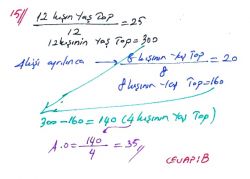 15//
12 kişinin Yaş Top / 12 = 25
12 kişinin Yaş Top = 300
4 kişi ayrılınca 8 kişinin -Yaş Top / 8 = 20
8 kişinin -Yaş Top = 160
300-160 = 140 (4 kişinin Yaş Top)
A.O = 140 / 4 = 35//
CEVAP: B